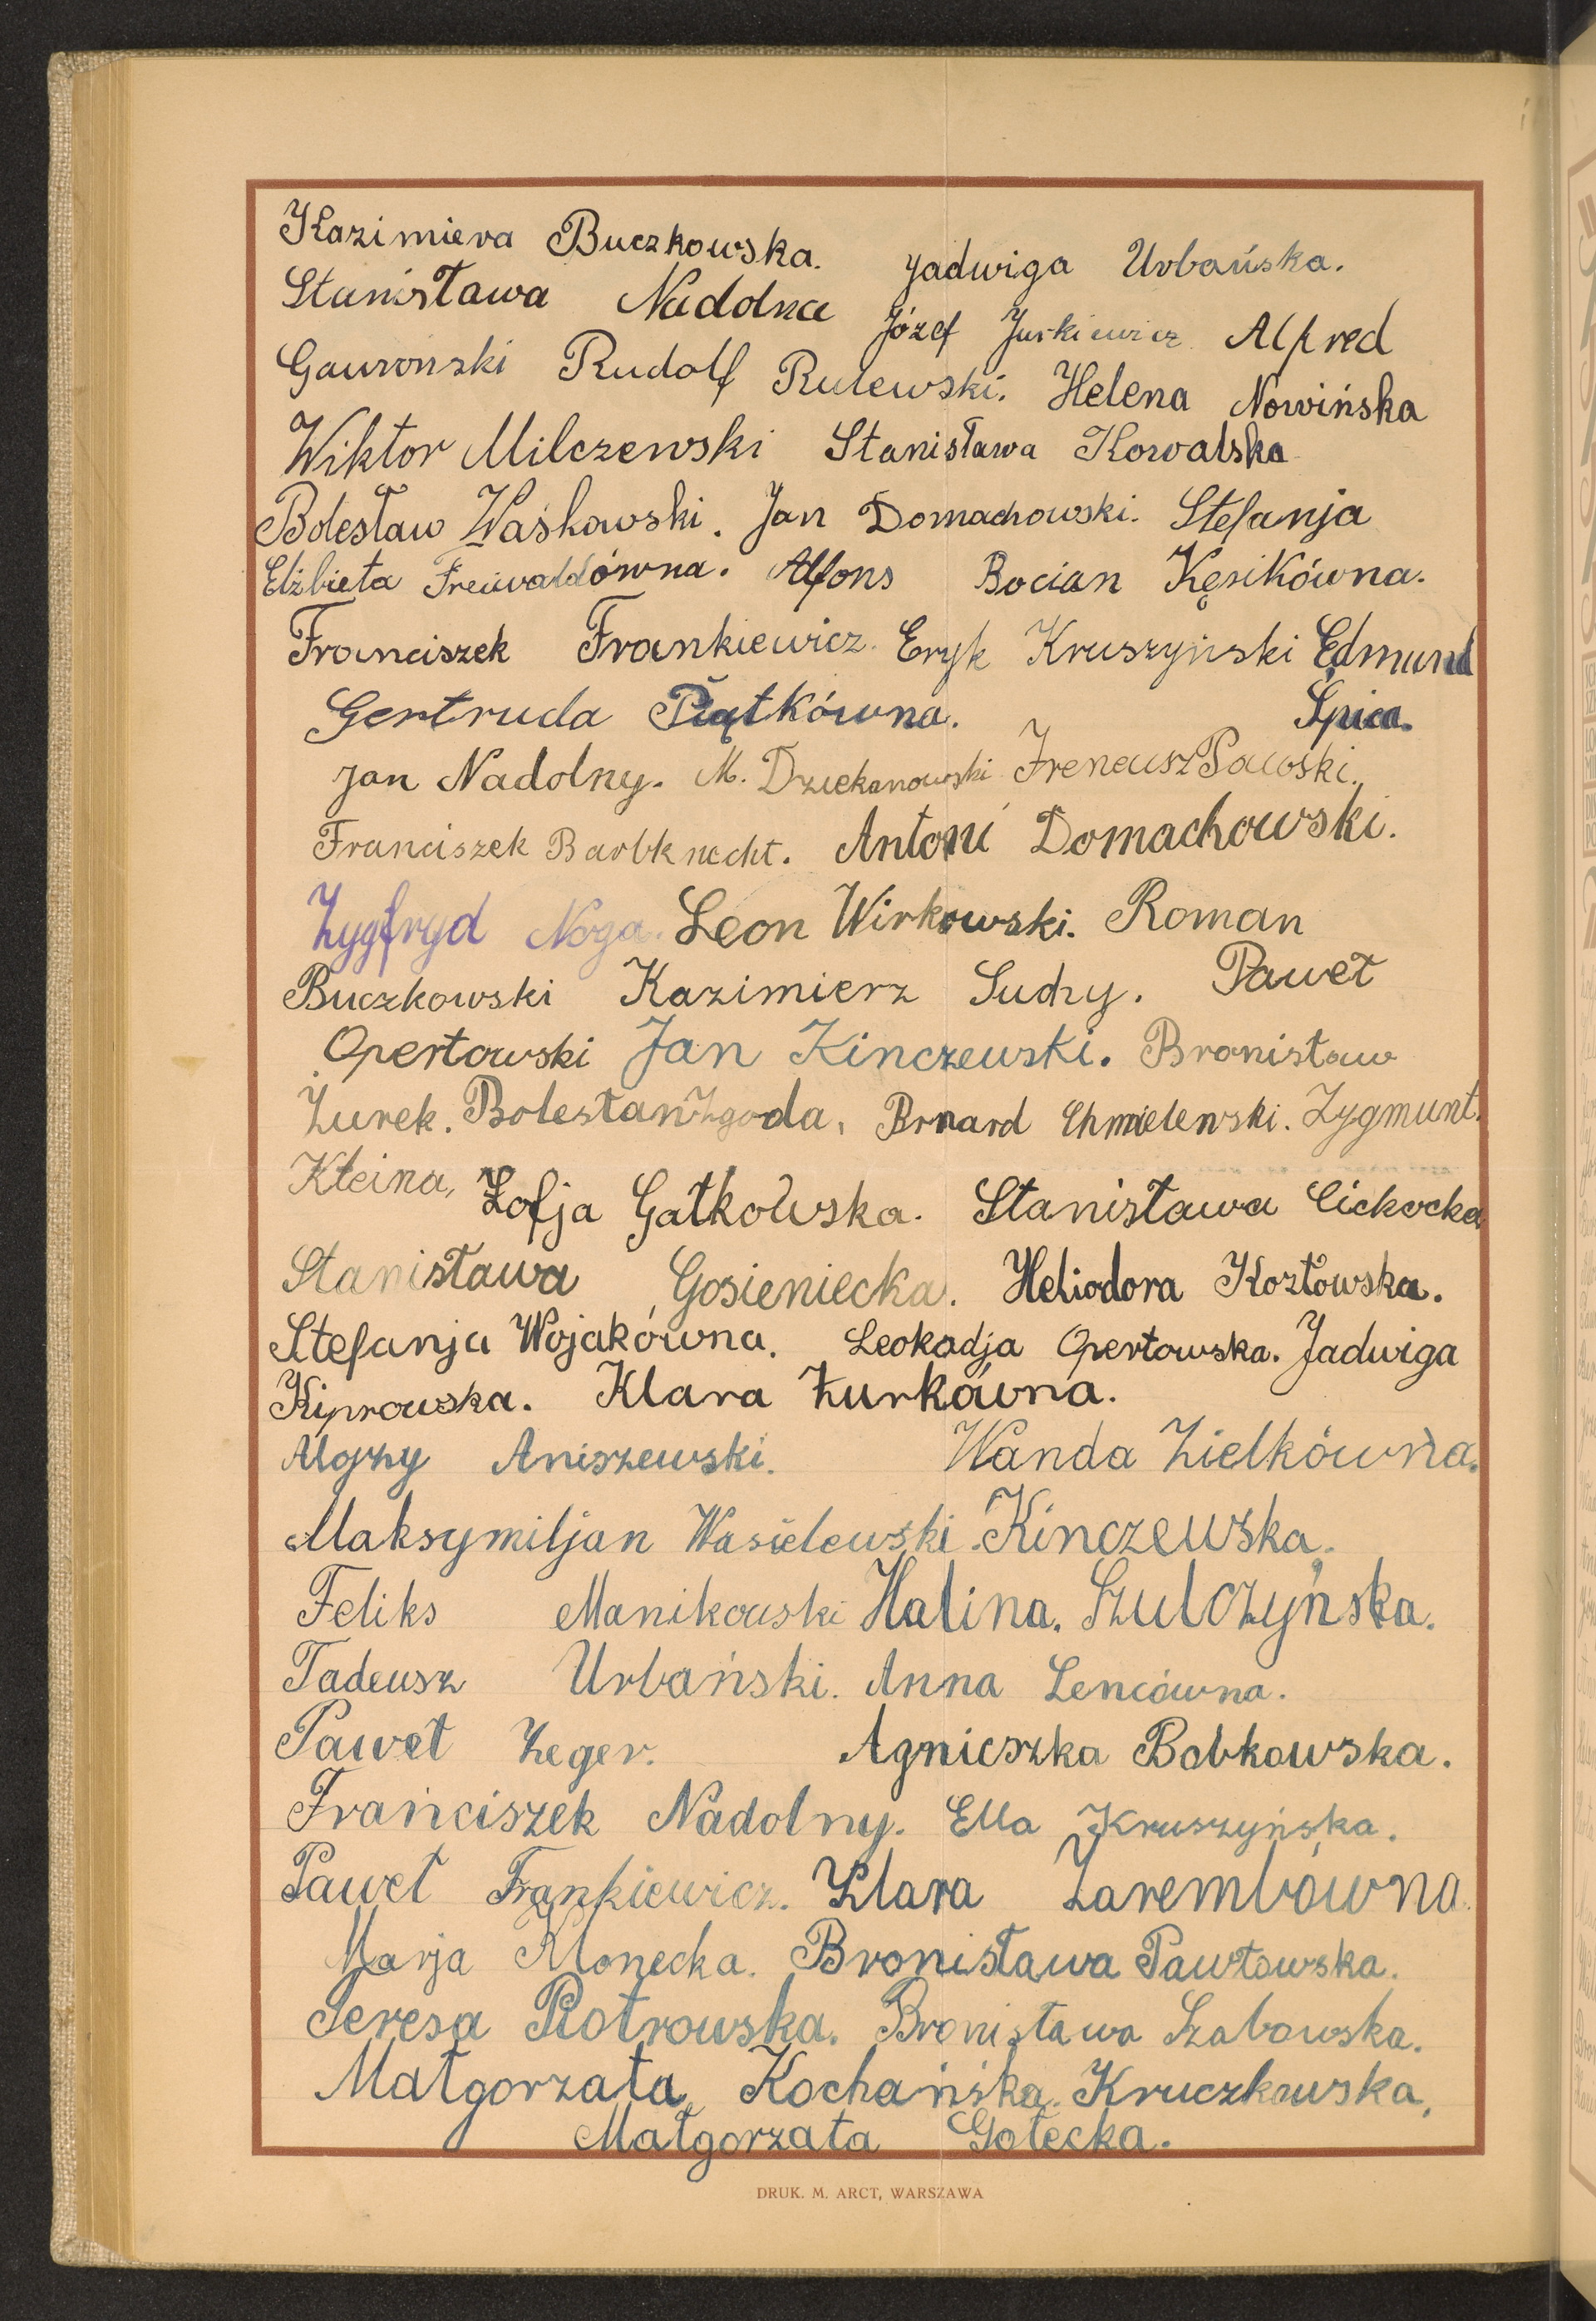 Kazimiera Buczkowska. Jadwiga Urbańska.
Stanisława Nadolna Józef Jurkiewicz Alfred
Gawronski Rudolf Rulewski. Helena Nowińska
Wiktor Milczewski Stanisława Kowalska
Bolesław Waśkowski. Jan Domachowski. Stefanja
Elżbieta Freiwaldówna. Alfons Bocian Kęsikówna.
Franciszek Frankiewicz. Eryk Kruszyński Edmund
Gertruda Piątkówna. Śpica.
Jan Nadolny. M. Dziekanowski Ireneusz Pawski.
Franciszek Barbknecht. Antoni Domachowski.
Zygfryd Noga. Leon Wirkowski. Roman
Buczkowski Kazimierz Suchy. Paweł
Opertowski Jan Kinczewski. Bronisław
Żurek. Bolesław Zgoda, Brnard Chmielewski. Zygmunt.
Kleina, Zofja Gałkowska. Stanisława Cickocka
Stanisława Gosieniecka. Heliodora Kozłowska.
Stefanja Wojakówna. Leokadja Opertowska. Jadwiga
Kiprowska. Klara Żurkówna.
Alojzy Aniszewski. Wanda Zielkówna.
Maksymiljan Wasielewski. Kinczewska.
Feliks Manikowski Halina. Szulczyńska.
Tadeusz Urbański. Anna Lencówna.
Paweł Zeger. Agnieszka Bobkowska.
Franciszek Nadolny. Ella Kruszyńska.
Paweł Frankiewicz. Klara Zarembówna.
Marja Klonecka. Bronisława Pawłowska.
Teresa Piotrowska. Bronisława Szabowska.
Małgorzata Kochańska. Kruczkowska,
Małgorzata Gołecka.
DRUK. M. ARCT, WARSZAWA